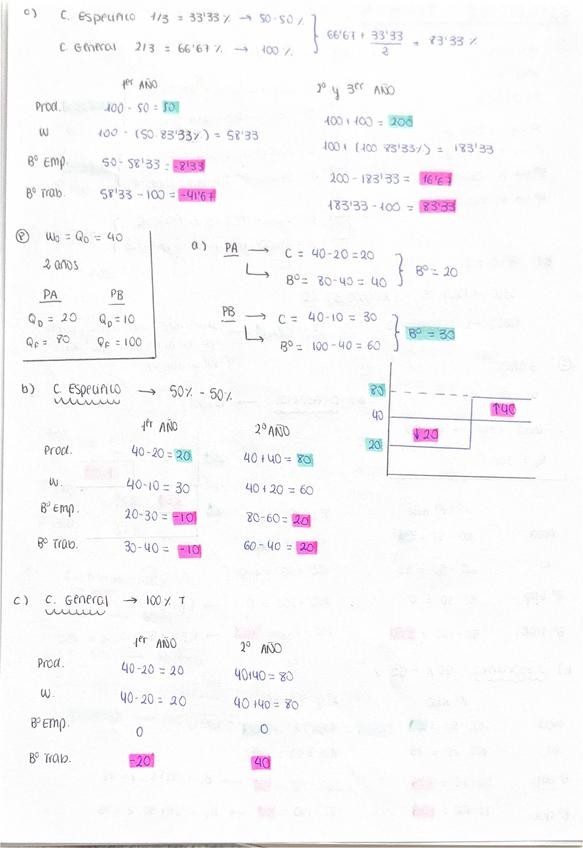 c) C. Específico 1/3 = 33'33 % → 50-50 % } 66'67 + 33'33/2 = 83'33 %
C. General 2/3 = 66'67 % → 100 %
1er AÑO 2º y 3er AÑO
Prod. 100 - 50 = 50 100 + 100 = 200
W 100 - (50·83'33%) = 58'33 100 + (100·83'33%) = 183'33
Bº Emp. 50 - 58'33 = -8'33 200 - 183'33 = 16'67
Bº Trab. 58'33 - 100 = -41'67 183'33 - 100 = 83'33
W0 = Q0 = 40
2 años
PA PB
QD = 20 QD = 10
QF = 80 QF = 100
a) PA → C = 40 - 20 = 20 } Bº = 20
→ Bº = 80 - 40 = 40
PB → C = 40 - 10 = 30 } Bº = 30
→ Bº = 100 - 40 = 60
80
40
20
↓20
↑40
b) C. Específico → 50% - 50%
1er AÑO 2º AÑO
Prod. 40 - 20 = 20 40 + 40 = 80
W. 40 - 10 = 30 40 + 20 = 60
Bº Emp. 20 - 30 = -10 80 - 60 = 20
Bº Trab. 30 - 40 = -10 60 - 40 = 20
c) C. General → 100% T
1er AÑO 2º AÑO
Prod. 40 - 20 = 20 40 + 40 = 80
W. 40 - 20 = 20 40 + 40 = 80
Bº Emp. 0 0
Bº Trab. -20 40